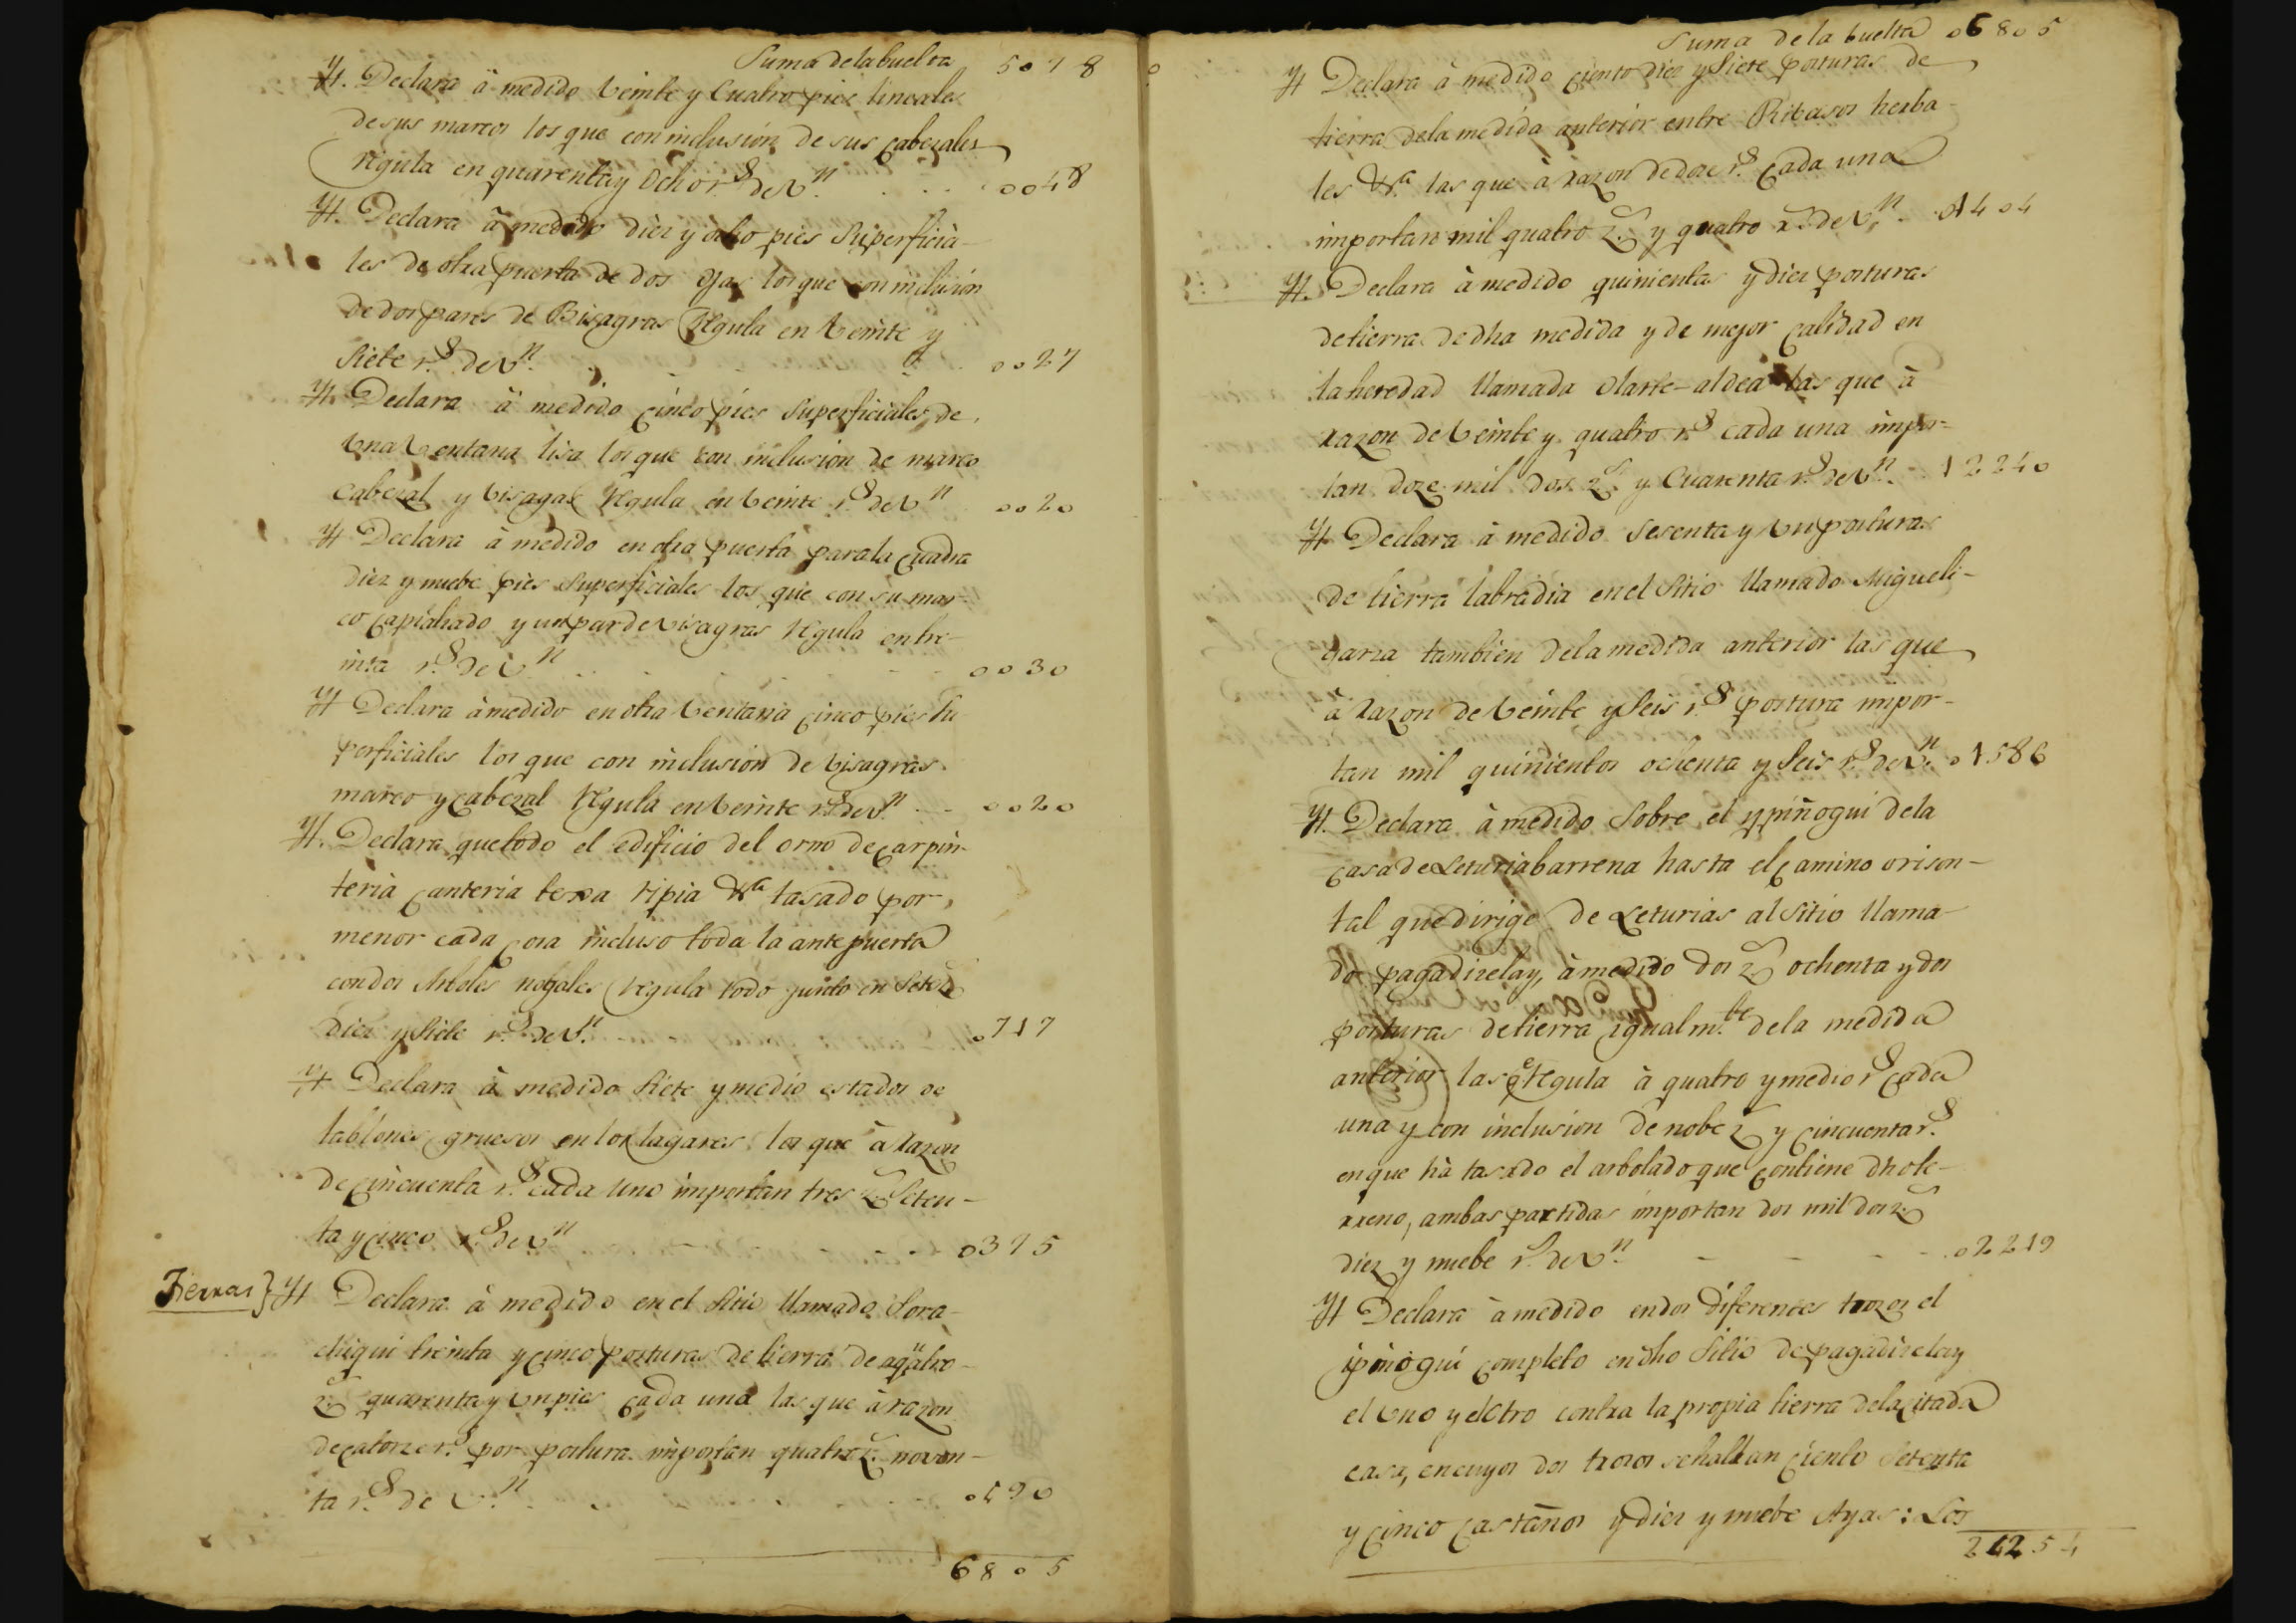 Suma delabuelta 5078
Yt. Declara â medido veinte y Cuatro pies lineales
desus marcos los que coninclusión de sus cabezales
regula en quarentay Ocho r.s de V.n . . . 0048
Yt. Declara â medido diez y ocho pies Superficia-
les de otra puerta de dos Ojas los que con inclusion
de dos pares de Bisagras Regula en veinte y
Siete r.s de V.n . . . 0027
Yt. Declara â medido cinco pies Superficiales de
una ventana lisa los que con inclusion de marco
cabezal y visagas Regula en veinte r.s de V.n 0020
Yt Declara â medido en otra puerta parala cuadra
diez y nuebe pies superficiales los que con su mar-
co capialzado y un par de visagras Regula en tre-
inta r.s de V.n . . . 0030
Yt Declara âmedido en otra ventana cinco pies Su
perficiales los que con inclusion de visagras
marco y cabezal Regula en veinte r.s de V.n . . 0020
Yt. Declara que todo el edificio del orno de carpin-
teria canteria texa ripia &.a tasado por
menor cada cosa incluso toda la ante puerta
con dos Arboles nogales Regula todo junto en Setez.
diez y Siete r.s de V.n 0717
Yt Declara â medido Siete y medio estados de
tablones gruesos en los lagares los que â razon
de cincuenta r.s cada uno importan tres z. Seten-
ta y cinco r.s de V.n - - . 0375
Tierras} Yt Declara â medido en el Sitio llamado Sora-
chigui treinta y cinco posturas de tierra de aquatro-
z. quarenta y un pies cada una las que â razon
de catorze r.s por postura importan quatroz. noven-
ta r.s de V.n . . 0490
6805
Suma de la buelta 06805
Yt Declara â medido ciento diez y Siete posturas de
tierra dela medida anterior entre Ribasos herba-
les &.a las que â razon de doze r.s cada una
importan mil quatro z. y quatro r.s de V.n . 01404
Yt. Declara â medido quinientas y diez posturas
de tierra de dha medida y de mejor calidad en
la heredad llamada Olarte-aldea las que â
razon de veinte y quatro r.s cada una impor-
tan doze mil dos z. y Cuarenta r.s de V.n . 12240
Yt. Declara â medido Sesenta y un posturas
de tierra labradia en el Sitio llamado Migueli-
garza tambien dela medida anterior las que
â razon de veinte y Seis r.s postura impor-
tan mil quinientos ochenta y Seis r.s de V.n 01586
Yt. Declara â medido Sobre el ypiñogui dela
casa de Leturiabarrena hasta el camino orison-
tal que dirige de Leturias al Sitio llama-
do pagadizelay, â medido dos z. ochenta y dos
posturas de tierra igualm.te de la medida
anterior las q.e Regula â quatro y medio r.s cada
una y con inclusion de nobez. y cincuenta r.s
en que hâ tasado el arbolado que contiene dho te-
rreno, ambas partidas importan dos mil dos z.
diez y nuebe r.s de V.n - - - . 02219
Yt Declara â medido en dos diferentes trozos el
ipiñogui completo en dho Sitio de pagadizelay
el uno y el otro contra la propia tierra dela citada
casa, en cuyos dos trozos se hallan ciento Setenta
y cinco castaños y diez y nuebe Ayas: Los
24254